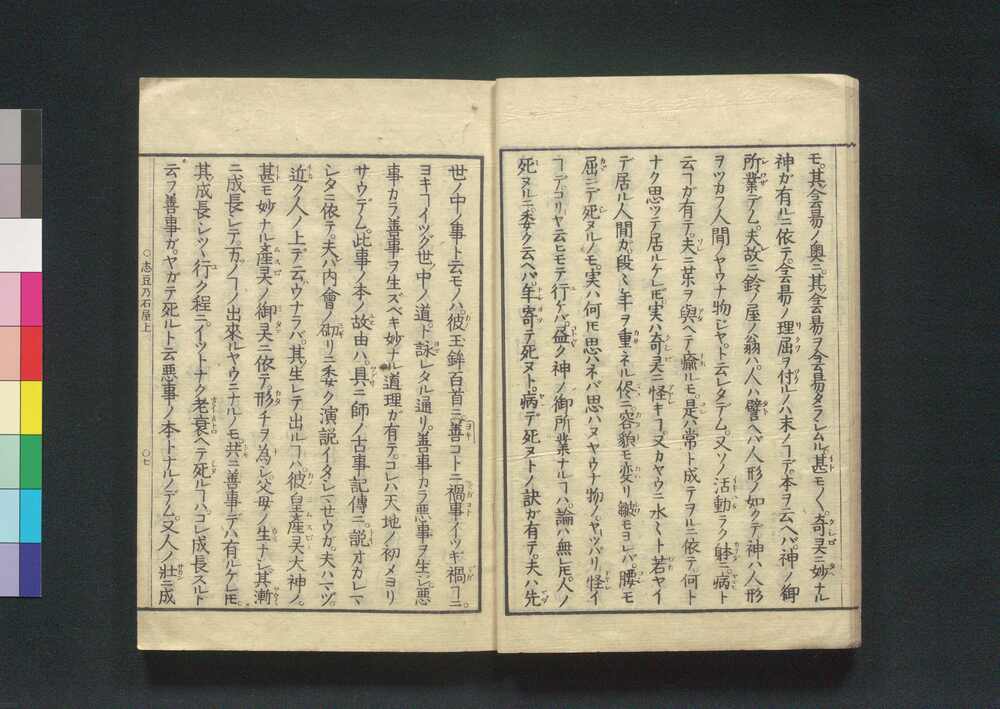 モ。其侌昜ノ奥ニ。其侌昜ヲ侌昜タラシムル甚モノ〻。奇灵ニ妙ナル
神ガ有ルニ依テ。侌昜ノ理屈ヲ付ルノハ末ノヿデ。本ヲ云ヘバ。神ノ御
所業デム。夫故ニ鈴ノ屋ノ翁ハ。人ハ譬ヘバ人形ノ如クデ。神ハ人形
ヲツカフ人間ノヤウナ物ジヤ。ト云レタデム。又ソノ活動ラク躰ニ。病ト
云ヿガ有テ。夫ニ薬ヲ與ヘテ愉ルモ。是ハ常ト成テヲルニ依テ。何ト
ナク思ツテ居ルケレ𪜈。実ハ奇灵ニ怪キヿ。又カヤウニ水〻ト若ヤイ
デ居ル人間ガ。段〻年ヲ重ネル侭ニ。容貌モ変リ。皺モヨレバ。腰モ
屈ンデ死ヌルノモ。実ハ何𪜈思ハネバ思ハヌヤウナ物ノ。ヤツパリ。怪イ
ヿデ。コリヤ云ヒモテ行ケバ。盡ク神ノ御所業ナルヿハ。論ハ無レ𪜈。人ノ
死ヌルニ。委ク云ヘバ。年寄テ死ヌト。病デ死ヌトノ訣ガ有テ。夫ハ先
世ノ中ノ事ト云モノハ。彼玉鉾百首ニ。善コトニ禍事イツギ禍ヿニ。
ヨキヿイツグ世ノ中ノ道。ト詠レタル通リ。善事カラ悪事ヲ生ジ。悪
事カラ善事ヲ生ズベキ妙ナル道理ガ有テ。コレハ天地ノ初メヨリ
サウデム。此事ノ本ノ故由ハ。具ニ師ノ古事記傳ニ。説オカレマ
シタニ依テ。夫ハ内會ノ砌リニ委ク演説イタシマセウガ。夫ハマヅ。
近ク人ノ上デ云ウナラバ。其生レテ出ルヿハ。彼皇産灵大神ノ。
甚モ妙ナル産灵ノ御灵ニ依テ。形チヲ為シ。父母ノ生ナシ。其漸
ニ成長シテ。万ノヿノ出來ルヤウニナルノモ。共ニ善事デハ有ルケレ𪜈。
其成長シツ〻行ク程ニ。イツトナク老衰ヘテ死ルヿハ。コレ成長スルト
云フ善事ガ。ヤガテ死ルト云悪事ノ本トナルノデム。又人ノ壮ニ成
○志豆乃石屋上
○七